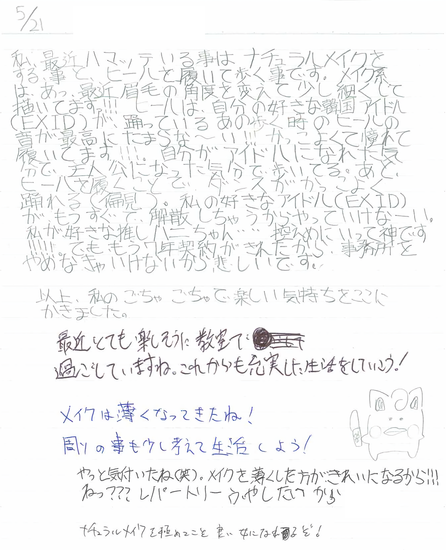 5/21
私、最近ハマッている事は、ナチュラルメイクを
する事と、ヒールを履いて歩く事です。メイク系
は、あっ、最近眉毛の角度を変えて少し細くして
描いてます!!! ヒールは自分の好きな韓国アイドル
(EXID)が、踊っている、あの歩く時のヒールの
音が最高にたまらない!!! かっこよくて憧れて
履いてます!!! 自分がアイドルになれた気
分で、主人公になった気分で歩いてる。あと、
ヒールを履くことで、ダンスがかっこよく
踊れる(偏見)。私の好きなアイドル(EXID)
がもうすぐで、解散しちゃうからやっていけなーい。
私が好きな推しハニちゃん… 控えめにいって神です
!!!!! でも、もう7年契約がきれたから、事務所を
やめなきゃいけないから悲しいです。
以上、私のごちゃごちゃで楽しい気持ちをここに
かきました。
最近とても楽しそうに教室で
過ごしていますね。これからも充実した生活をしていこう!
メイクは薄くなってきたね!
周りの事も少し考えて生活しよう!
やっと気付いたね(笑)。メイクを薄くした方がきれいになるから!!!
ねっ??? レパートリーふやしたい
ナチュラルメイクを極めて 良い女になるぞ!